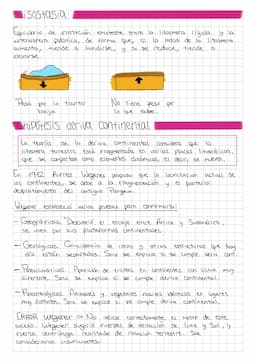 Isostasia
Equilibrio de flotación existente entre la litosfera rígida y la
astenosfera plástica, de forma que, si la masa de la litosfera
aumenta, tiende a hundirse, y si se reduce, tiende a
elevarse.
Pesa por lo tanto
baja
No tiene peso por
lo que sube.
Hipótesis deriva continental
La teoría de la deriva continental considera que la
litosfera terrestre está fragmentada en varias placas litosféricas,
que se comportan como elementos dinámicos, es decir, se mueven.
En 1912 Alfred Wegener propuso que la localización actual de
los continentes, se debe a la fragmentación y el posterior
desplazamiento del antiguo Pangea.
Wegener estableció varias pruebas para confirmarla:
- Geográficas. Descubrió el encaje entre África y Sudamérica,
se unen por sus plataformas continentales.
- Geológicas. Coincidencia de rocas y otras estructuras que hoy
día están separadas. Solo se explica si se cumple deriva cont.
- Paleoclimáticas. Aparición de tillitas en continentes con clima muy
diferente. Solo se explica si se cumple deriva continental.
- Paleontológicas. Animales y vegetales fósiles idénticos en lugares
muy distintos. Solo se explica si se cumple deriva continental.
ERROR Wegener -> No indicar correctamente el motor de este
suceso. Wegener sugirió fuerzas de atracción de Luna y Sol, y
fuerza centrífuga resultado de rotación terrestre. Se
consideraron insuficientes.